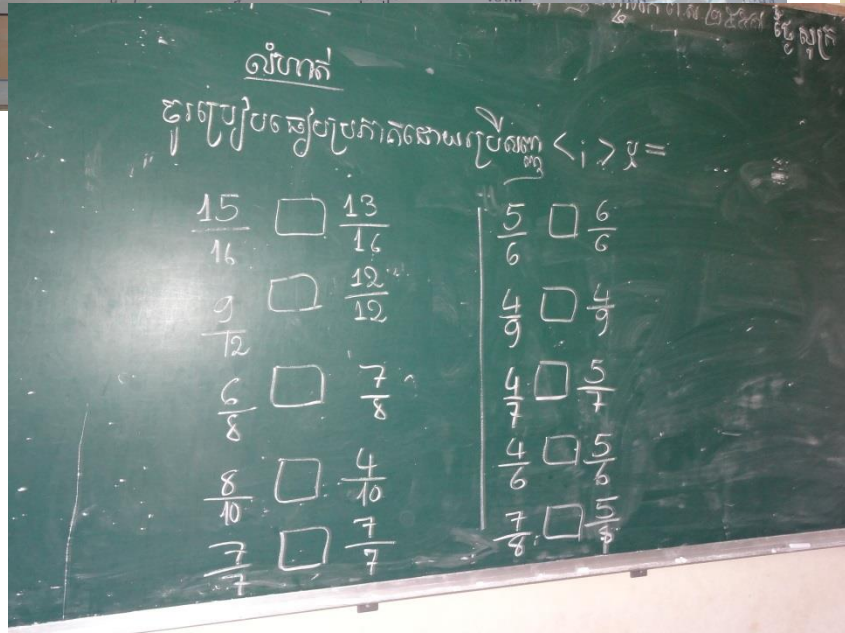 ថ្ងៃសុក្រ
លំហាត់
ចូរប្រៀបធៀបប្រភាគដោយប្រើសញ្ញា < ; > ឬ =
15/16 □ 13/16
9/12 □ 12/12
6/8 □ 7/8
8/10 □ 4/10
7/7 □ 7/7
5/6 □ 6/6
4/9 □ 4/9
4/7 □ 5/7
4/6 □ 5/6
7/8 □ 5/8